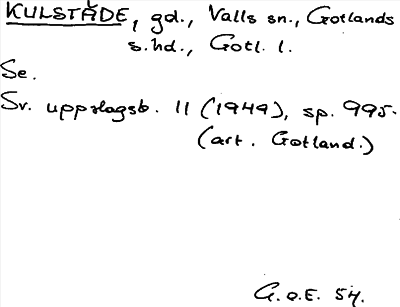 KULSTÄDE, gd., Valls sn., Gotlands
s.hd., Gotl. l.
Se.
Sv. uppslagsb. 11 (1949), sp. 995.
(art. Gotland.)
G.O.E. 54.